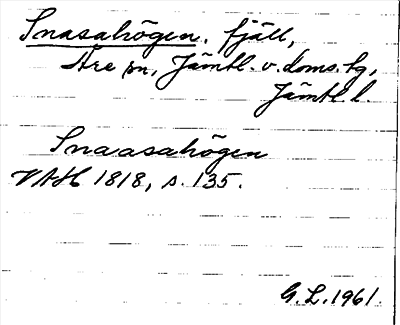 Snasahögen, fjäll,
Åre sn, Jämtl. v. doms. tg,
Jämtl. l.
Snaasahögen
VAH 1818, s. 135.
G. L. 1961.